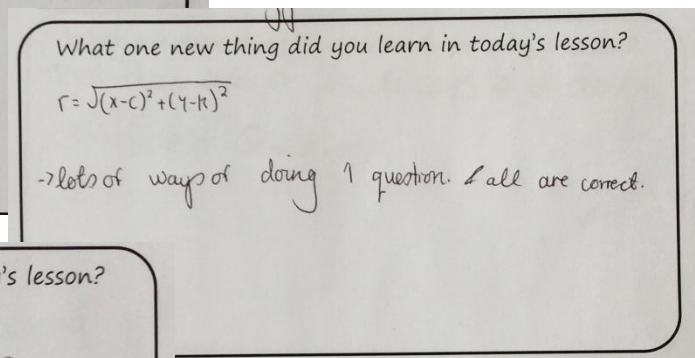 What one new thing did you learn in today's lesson?
r = √(x-c)² + (y-k)²
→ lots of ways of doing 1 question. & all are correct.
's lesson?